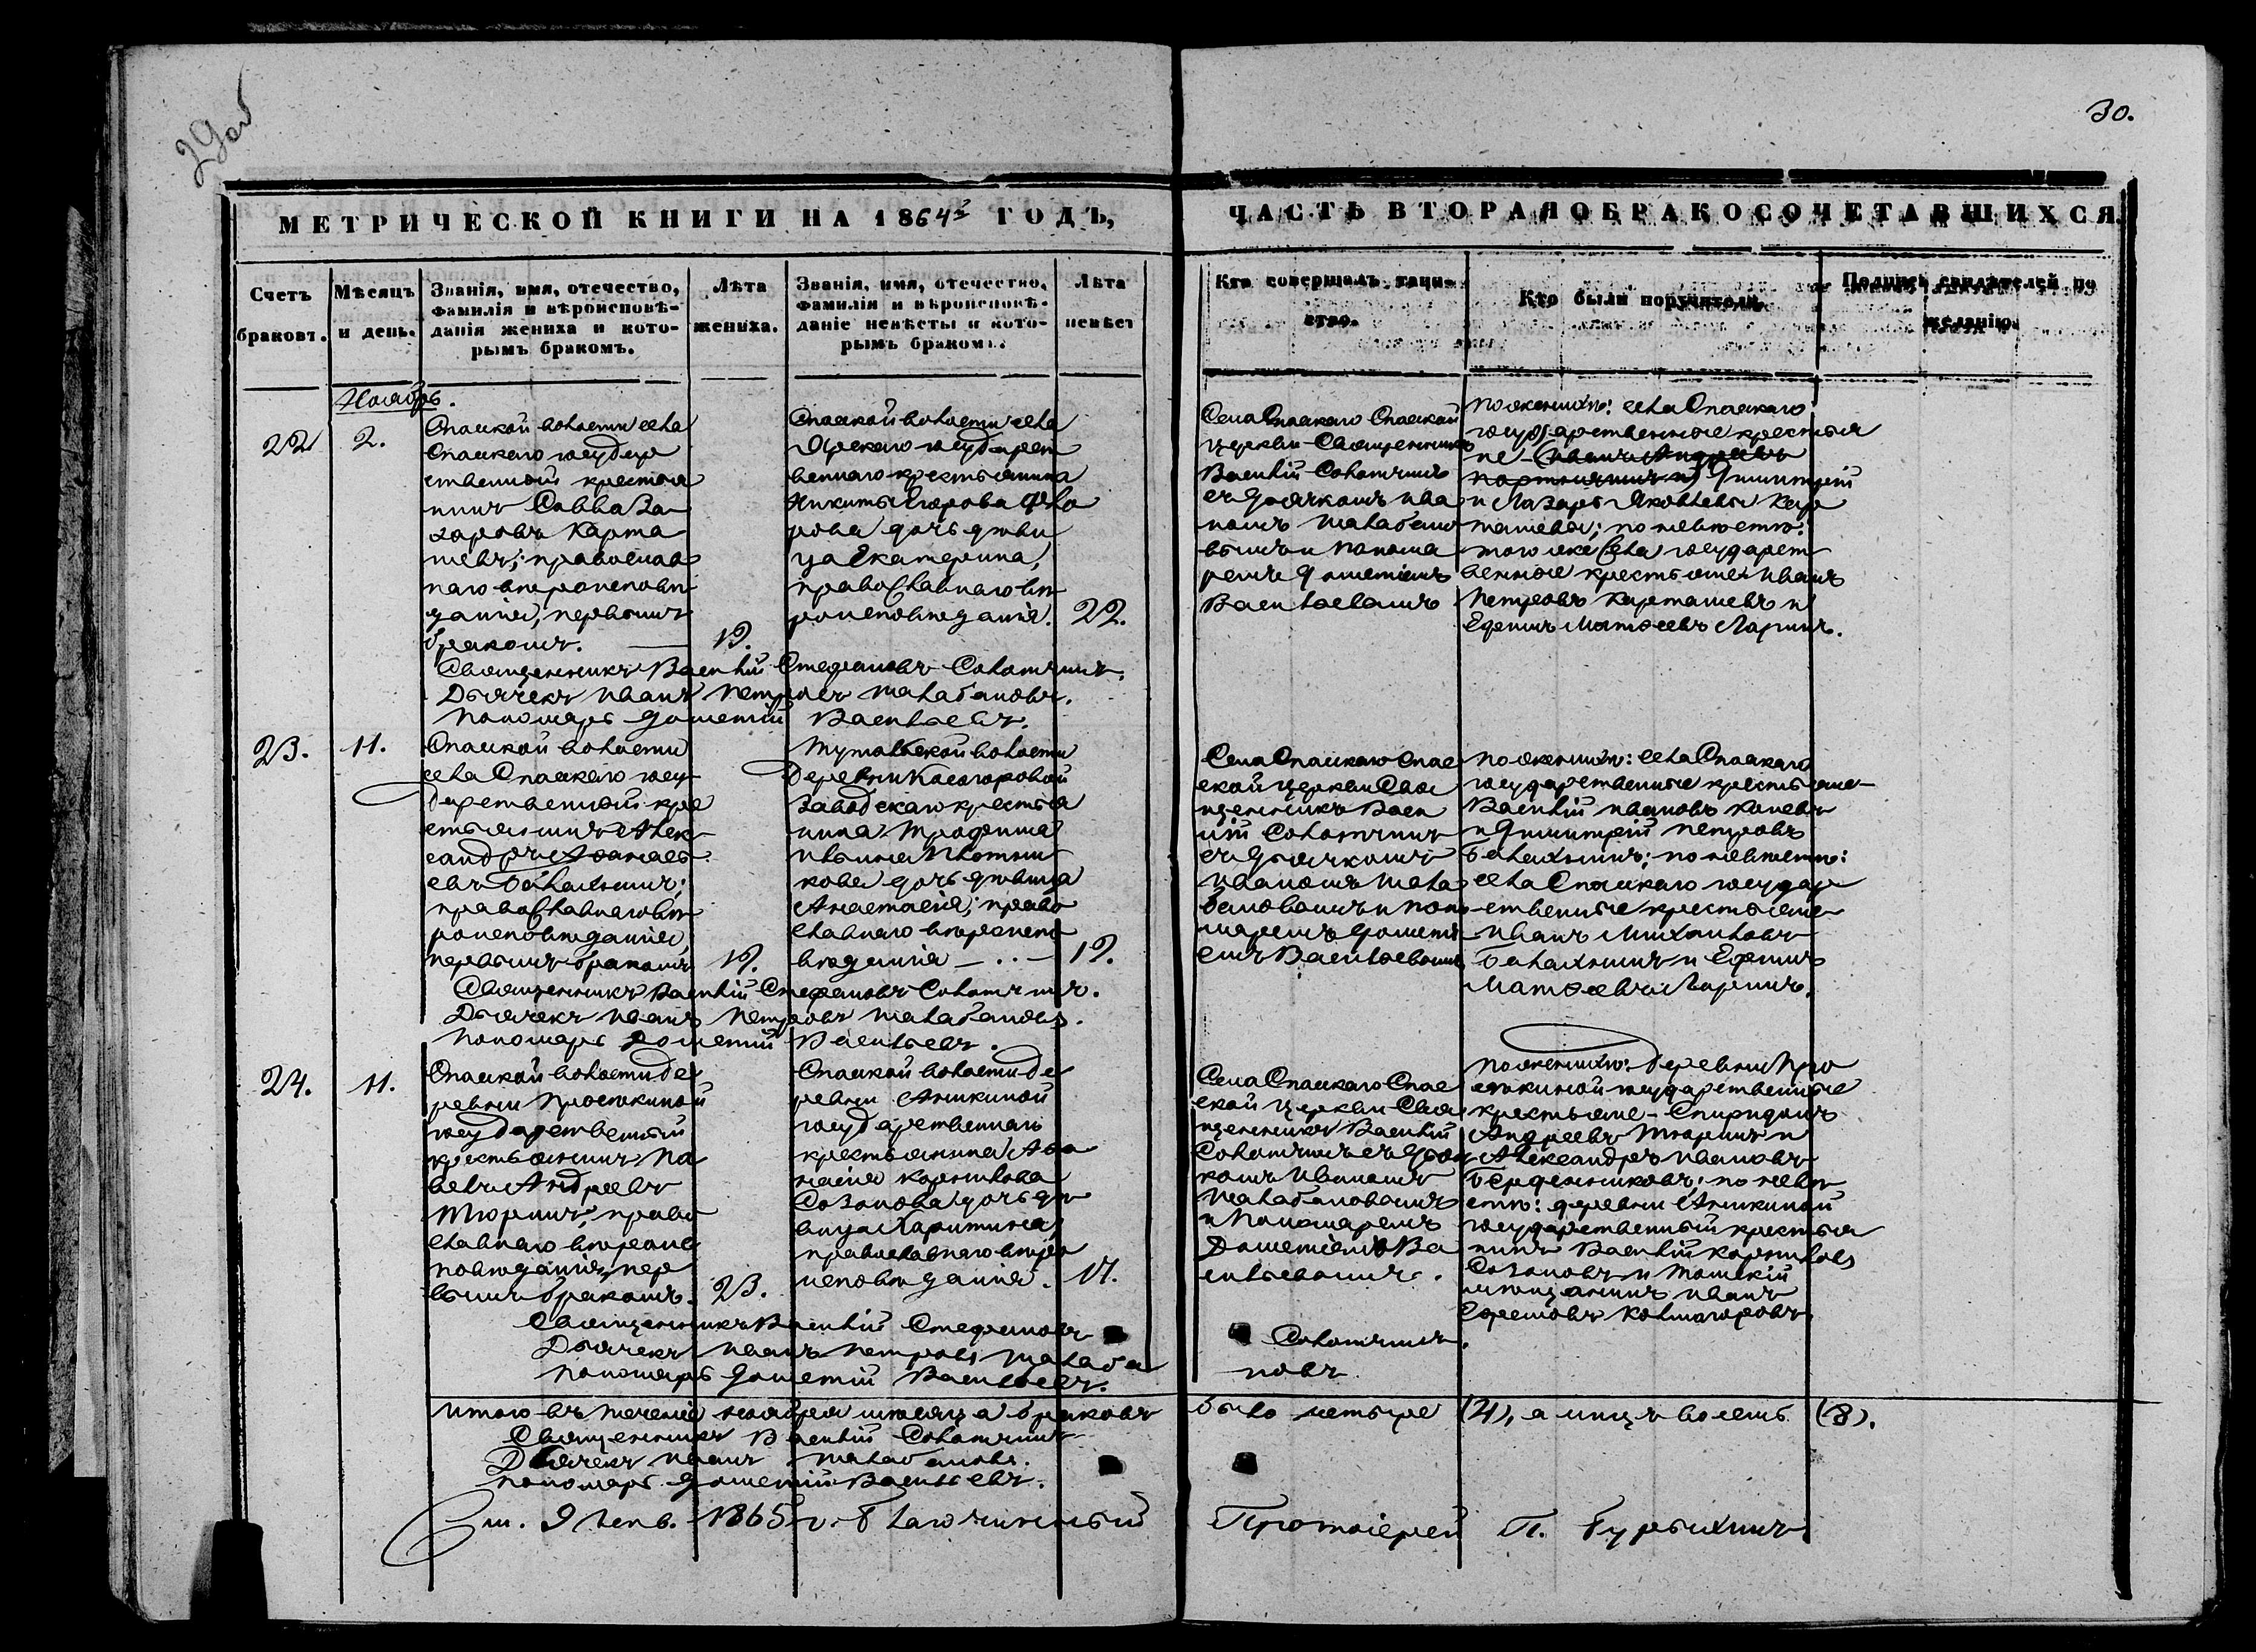 29об
30.
МЕТРИЧЕСКОЙ КНИГИ НА 1864й ГОДЪ,
ЧАСТЬ ВТОРАЯ О БРАКОСОЧЕТАВШИХСЯ.
Счетъ
браковъ.
Мѣсяцъ
и день.
Званія, имя, отечество,
фамилія и вѣроисповѣ-
данія жениха и кото-
рымъ бракомъ.
Лѣта
жениха.
Званія, имя, отечество,
фамилія и вѣроисповѣ-
даніе невѣсты и кото-
рымъ бракомъ.
Лѣта
невѣст
Кто совершалъ таин-
ство.
Кто были поручители.
Подпись свидѣтелей по
желанію.
Ноябрь.
22
2.
Спаской волости села
Спаскаго государ
ственный крестья
нинъ Савва За-
харовъ Карта
шевъ; православ
наго вѣроисповѣ
данія, первымъ
бракомъ.
19.
Спаской волости села
Ярскаго государст
веннаго крестьянина
Никиты Егорова Фло
рова дочь дѣви
ца Екатерина,
православнаго вѣ
роисповѣданія.
22.
Села Спаскаго Спаской
церкви Священникъ
Василій Солотчинъ
съ дьячкомъ Ива
номъ Малабано
вымъ и понома
ремъ Дометіемъ
Васильевымъ
по женихѣ: села Спаскаго
государственные крестья
не Дмитрій
и Лазарь Яковлевы Кар
ташевы; по невѣстѣ:
того же села государст
венные крестьяне Иванъ
Петровъ Карташевъ и
Ефимъ Матѳеевъ Ларинъ.
Священникъ Василій Стефановъ Солотчинъ.
Дьячекъ Иванъ Петровъ Малабановъ.
Пономарь Дометій Васильевъ.
23.
11.
Спаской волости
села Спаскаго госу
дарственный кре
стьянинъ Алек
сандръ Аѳанась
евъ Балахнинъ;
православнаго вѣ
роисповѣданія,
первымъ бракомъ
19.
Тутальской волости
деревни Косогоровой
заводскаго крестья
нина Трофима
Ивлина Плотни
кова дочь дѣвица
Анастасія; право
славнаго вѣроиспо
вѣданія
19.
Села Спаскаго Спас
ской церкви Свя
щенникъ Васи
лій Солотчинъ
съ дьячкомъ
Иваномъ Мала
бановымъ и поно
маремъ Дометі
емъ Васильевымъ
по женихѣ: села Спаскаго
государственные крестьяне
Василій Ивановъ Коневъ
и Дмитрій Петровъ
Балахнинъ; по невѣстѣ:
села Спаскаго государ
ственные крестьяне
Иванъ Михайловъ
Балахнинъ и Ефимъ
Матѳеевъ Ларинъ.
Священникъ Василій Стефановъ Солотчинъ.
Дьячекъ Иванъ Петровъ Малабановъ.
Пономарь Дометій Васильевъ.
24.
11.
Спаской волости де
ревни Просѣкиной
государственный
крестьянинъ Па
велъ Андреевъ
Тюринъ, право
славнаго вѣроис
повѣданія, пер
вымъ бракомъ.
23.
Спаской волости де
ревни Аникиной
государственнаго
крестьянина Аѳа
насія Корнилова
Созонова дочь дѣ
вица Харитина,
православнаго вѣро
исповѣданія.
17.
Села Спаскаго Спас
ской церкви Свя
щенникъ Василій
Солотчинъ съ дьяч
комъ Иваномъ
Малабановымъ
и Пономаремъ
Дометіемъ Ва
сильевымъ.
по женихѣ: деревни Про
сѣкиной государственные
крестьяне Спиридонъ
Андреевъ Тюринъ и
Александръ Ивановъ
Берденниковъ; по невѣ
стѣ: деревни Аникиной
государственный крестья
нинъ Василій Корниловъ
Созоновъ и Томскій
мѣщанинъ Иванъ
Ефремовъ Колмогоровъ
Священникъ Василій Стефановъ Солотчинъ.
Дьячекъ Иванъ Петровъ Малабановъ
Пономарь Дометій Васильевъ.
Итого въ теченіе ноября мѣсяца браковъ было четыре (4), а лицъ восемь (8).
Священникъ Василій Солотчинъ
Дьячекъ Иванъ Малабановъ.
Пономарь Дометій Васильевъ.
9 Генв. 1865 г. Благочинный Протоіерей П.